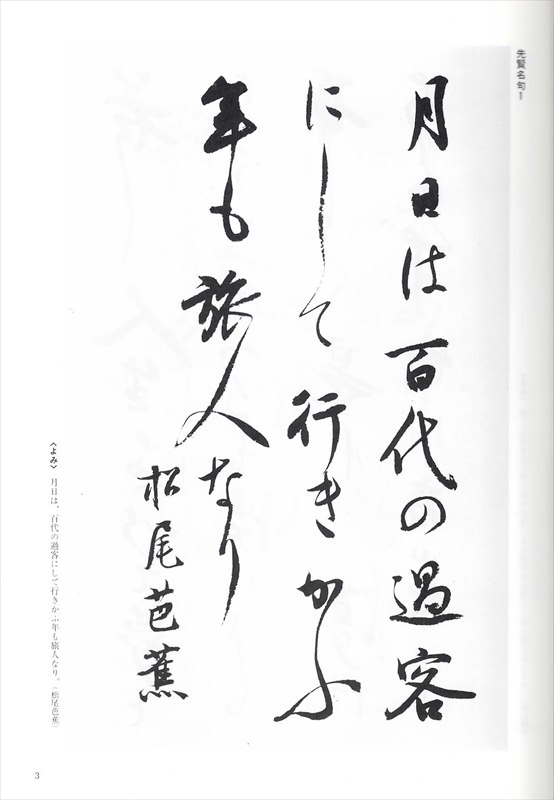 先賢名句1
月日は百代の過客
にして行きかふ
年も旅人なり
松尾芭蕉
〈よみ〉 月日は、百代の過客にして行きかふ年も旅人なり。(松尾芭蕉)
3